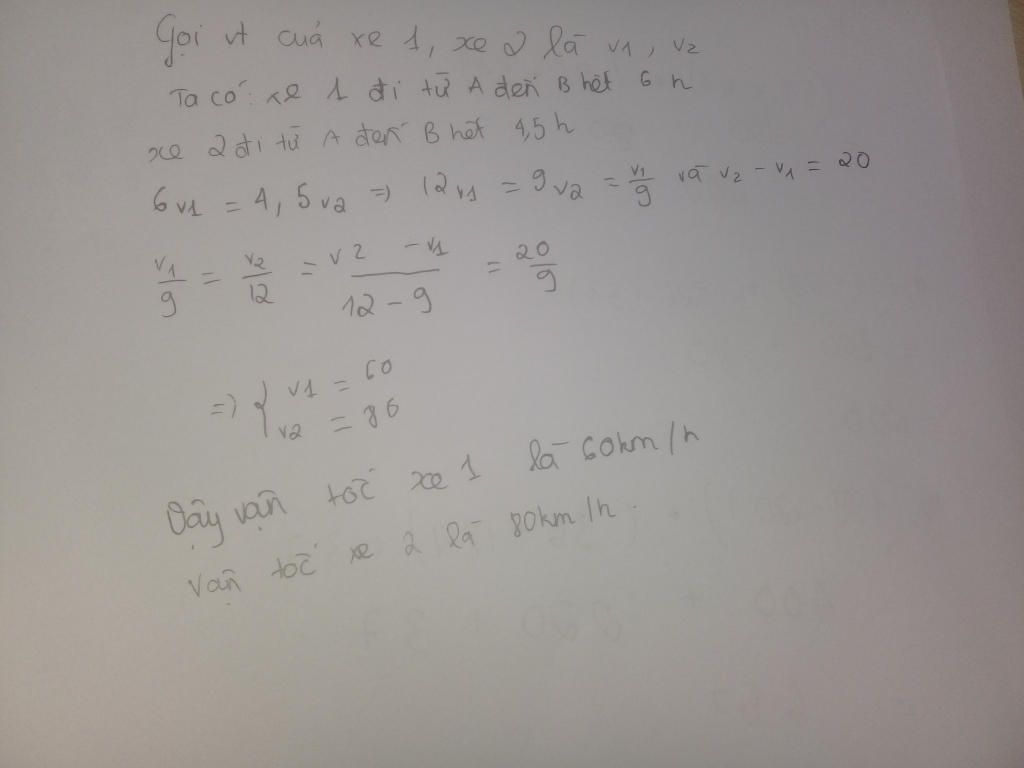 Gọi vt cuả xe 1, xe 2 là v1, v2
Ta có: xe 1 đi từ A đến B hết 6 h
xe 2 đi từ A đến B hết 4,5 h
6v1 = 4,5v2 => 12v1 = 9v2 = v1/9 và v2 - v1 = 20
v1/9 = v2/12 = v2 - v1/12 - 9 = 20/9
=> { v1 = 60
v2 = 86
Vậy vận tốc xe 1 là 60km/h
Vận tốc xe 2 là 80km/h.